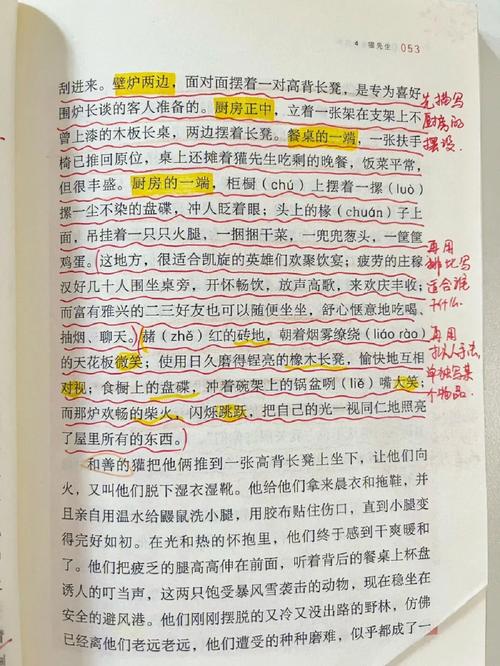 4 獾先生 053
刮进来。壁炉两边，面对面摆着一对高背长凳，是专为喜好
围炉长谈的客人准备的。厨房正中，立着一张架在支架上不
曾上漆的木板长桌，两边摆着长凳。餐桌的一端，一张扶手
椅已推回原位，桌上还摊着獾先生吃剩的晚餐，饭菜平常，
但很丰盛。厨房的一端，柜橱（chú）上摆着一摞（luò）
摞一尘不染的盘碟，冲人眨着眼；头上的椽（chuán）子上
面，吊挂着一只只火腿，一捆捆干菜，一兜兜葱头，一筐筐
鸡蛋。这地方，很适合凯旋的英雄们欢聚饮宴；疲劳的庄稼
汉好几十人围坐桌旁，开怀畅饮，放声高歌，来欢庆丰收；
而富有雅兴的二三好友也可以随便坐坐，舒心惬意地吃喝、
抽烟、聊天。赭（zhě）红的砖地，朝着烟雾缭绕（liáo rào）
的天花板微笑；使用日久磨得锃亮的橡木长凳，愉快地互相
对视；食橱上的盘碟，冲着碗架上的锅盆咧（liě）嘴大笑；
而那炉欢畅的柴火，闪烁跳跃，把自己的光一视同仁地照亮
了屋里所有的东西。
和善的獾把他俩推到一张高背长凳上坐下，让他们向
火，又叫他们脱下湿衣湿靴。他给他们拿来晨衣和拖鞋，并
且亲自用温水给鼹鼠洗小腿，用胶布贴住伤口，直到小腿变
得完好如初。在光和热的怀抱里，他们终于感到干爽暖和
了。他们把疲乏的腿高高伸在前面，听着背后的餐桌上杯盘
诱人的叮当声，这两只饱受暴风雪袭击的动物，现在稳坐在
安全的避风港。他们刚刚摆脱的又冷又没出路的野林，仿佛
已经离他们老远老远，他们遭受的种种磨难，似乎都成了一
先描写
厨房的
摆设。
再用
排比写
适合谁
干什么。
再用
拟人手法，
单独写某
个物品。